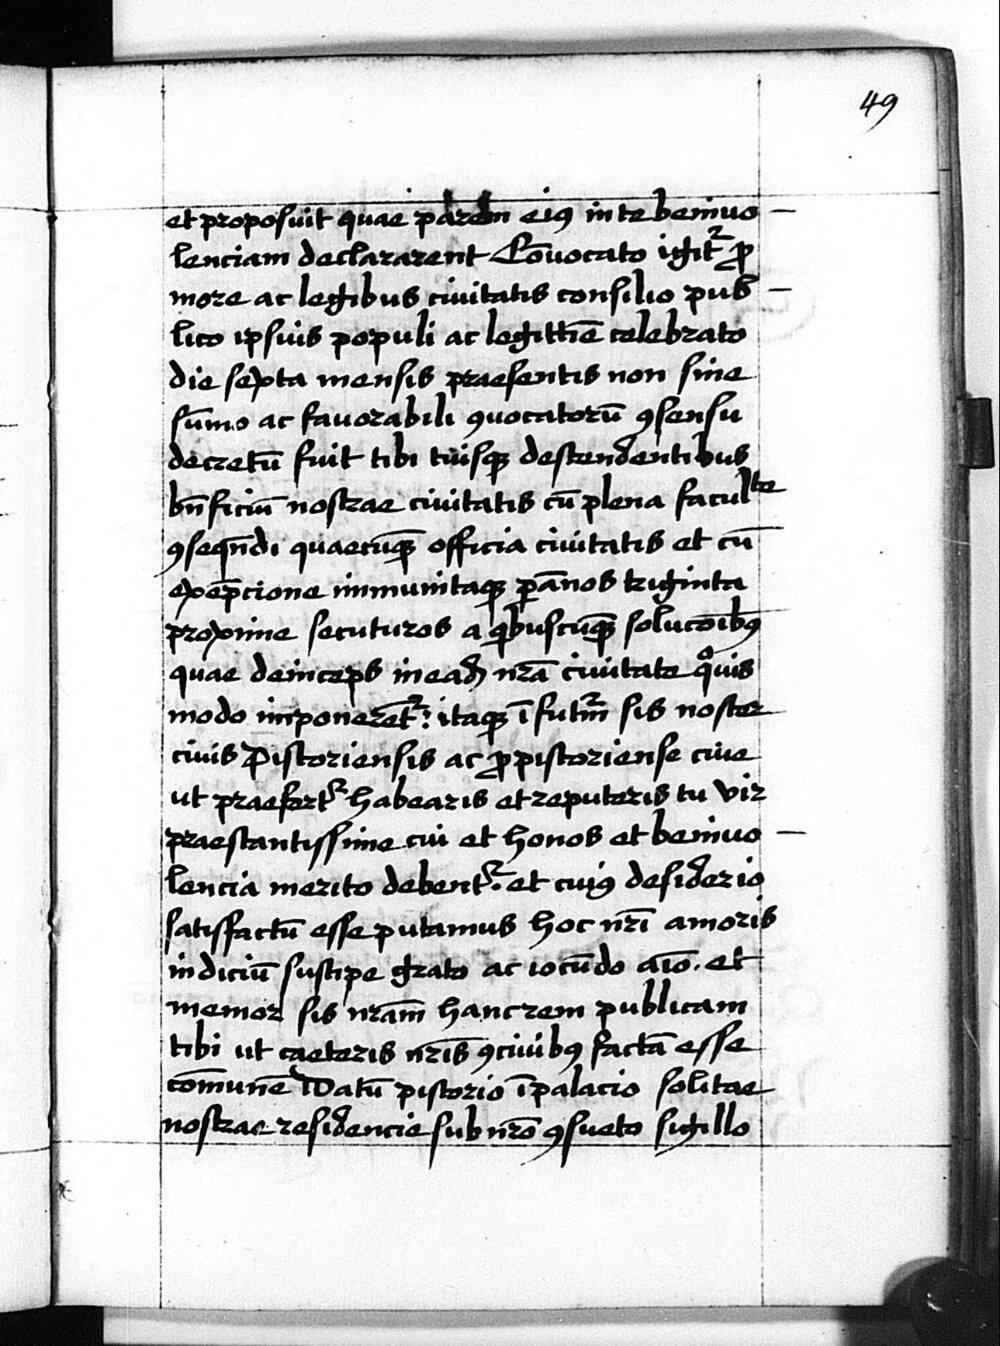 49
et proposuit quae parem eiꝰ in te beniuo —
lenciam declararent Cōuocato igit᷑ ꝓ
more ac legibus ciuitatis consilio pub —
lico ipsius populi ac legittīe celebrato
die sexta mensis praesentis non sine
sūmo ac fauorabili ꝯuocatorū ꝯsensu
decretū fuit tibi tuisqꝫ descendentibus
bn̄ficiū nostrae ciuitatis cū plena facultte
ꝯseqn̄di quaecūqꝫ officia ciuitatis et cū
exēpcione immunitaqꝫ ꝑ ānos triginta
proxime secuturos a qͥbuscūqꝫ solucōibꝰ
quae deinceps in eadꝫ nrā ciuitate qͦuis
modo imponerēt᷑: itaqꝫ ī futuꝝ sis noster
ciuis Pistoriensis ac ꝓ pistoriense ciue
ut praefert᷑ habearis et reputeris tu vir
praestantissime cui et honos et beniuo —
lencia merito debent᷑. et cuiꝰ desiderio
satisfactū esse putamus hoc nrī amoris
indiciū suscipe grato ac iocūdo aīo. et
memor sis nrām hanc rem publicam
tibi ut caeteris nrīs ꝯciuibꝰ factā esse
cōmunē Datū pistorio ī palacio solitae
nostrae residencie sub nrō ꝯsueto sigillo